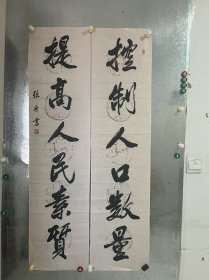 控制人口数量
提高人民素質